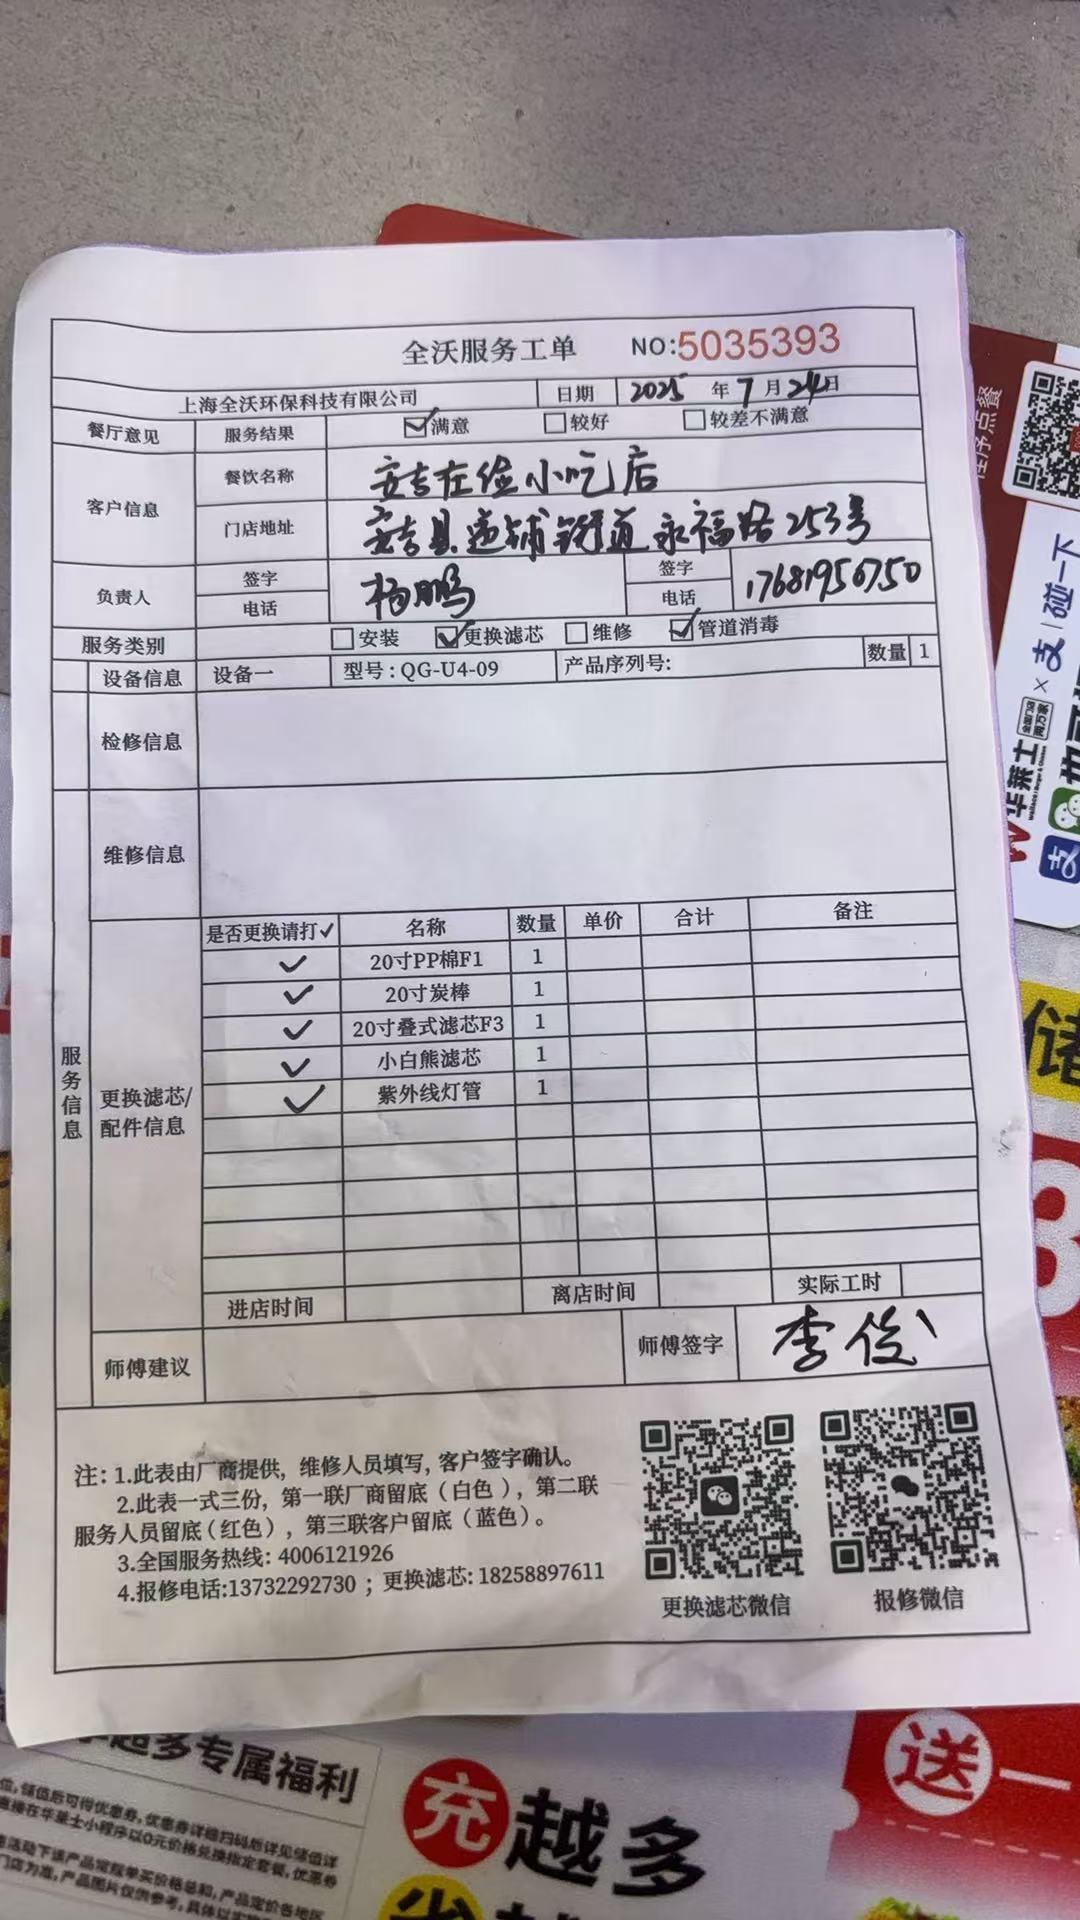 全沃服务工单 NO:5035393
上海全沃环保科技有限公司 日期 2025 年 7 月 24 日
餐厅意见 服务结果 满意 较好 较差不满意
客户信息 餐饮名称 安吉在俭小吃店
门店地址 安吉县递铺街道永福路253号
负责人 签字 电话 杨鹏 签字 电话 17681956750
服务类别 安装 更换滤芯 维修 管道消毒
设备信息 设备一 型号:QG-U4-09 产品序列号: 数量 1
检修信息
维修信息
服务信息
更换滤芯/配件信息
是否更换请打✓ 名称 数量 单价 合计 备注
✓ 20寸PP棉F1 1
✓ 20寸炭棒 1
✓ 20寸叠式滤芯F3 1
✓ 小白熊滤芯 1
✓ 紫外线灯管 1
进店时间 离店时间 实际工时
师傅建议 师傅签字 李俊
注:1.此表由厂商提供,维修人员填写,客户签字确认。
2.此表一式三份,第一联厂商留底(白色),第二联
服务人员留底(红色),第三联客户留底(蓝色)。
3.全国服务热线:4006121926
4.报修电话:13732292730;更换滤芯:18258897611
更换滤芯微信 报修微信
程序点餐
支|碰一下
华莱士
专属福利
充越多
送一
储
3